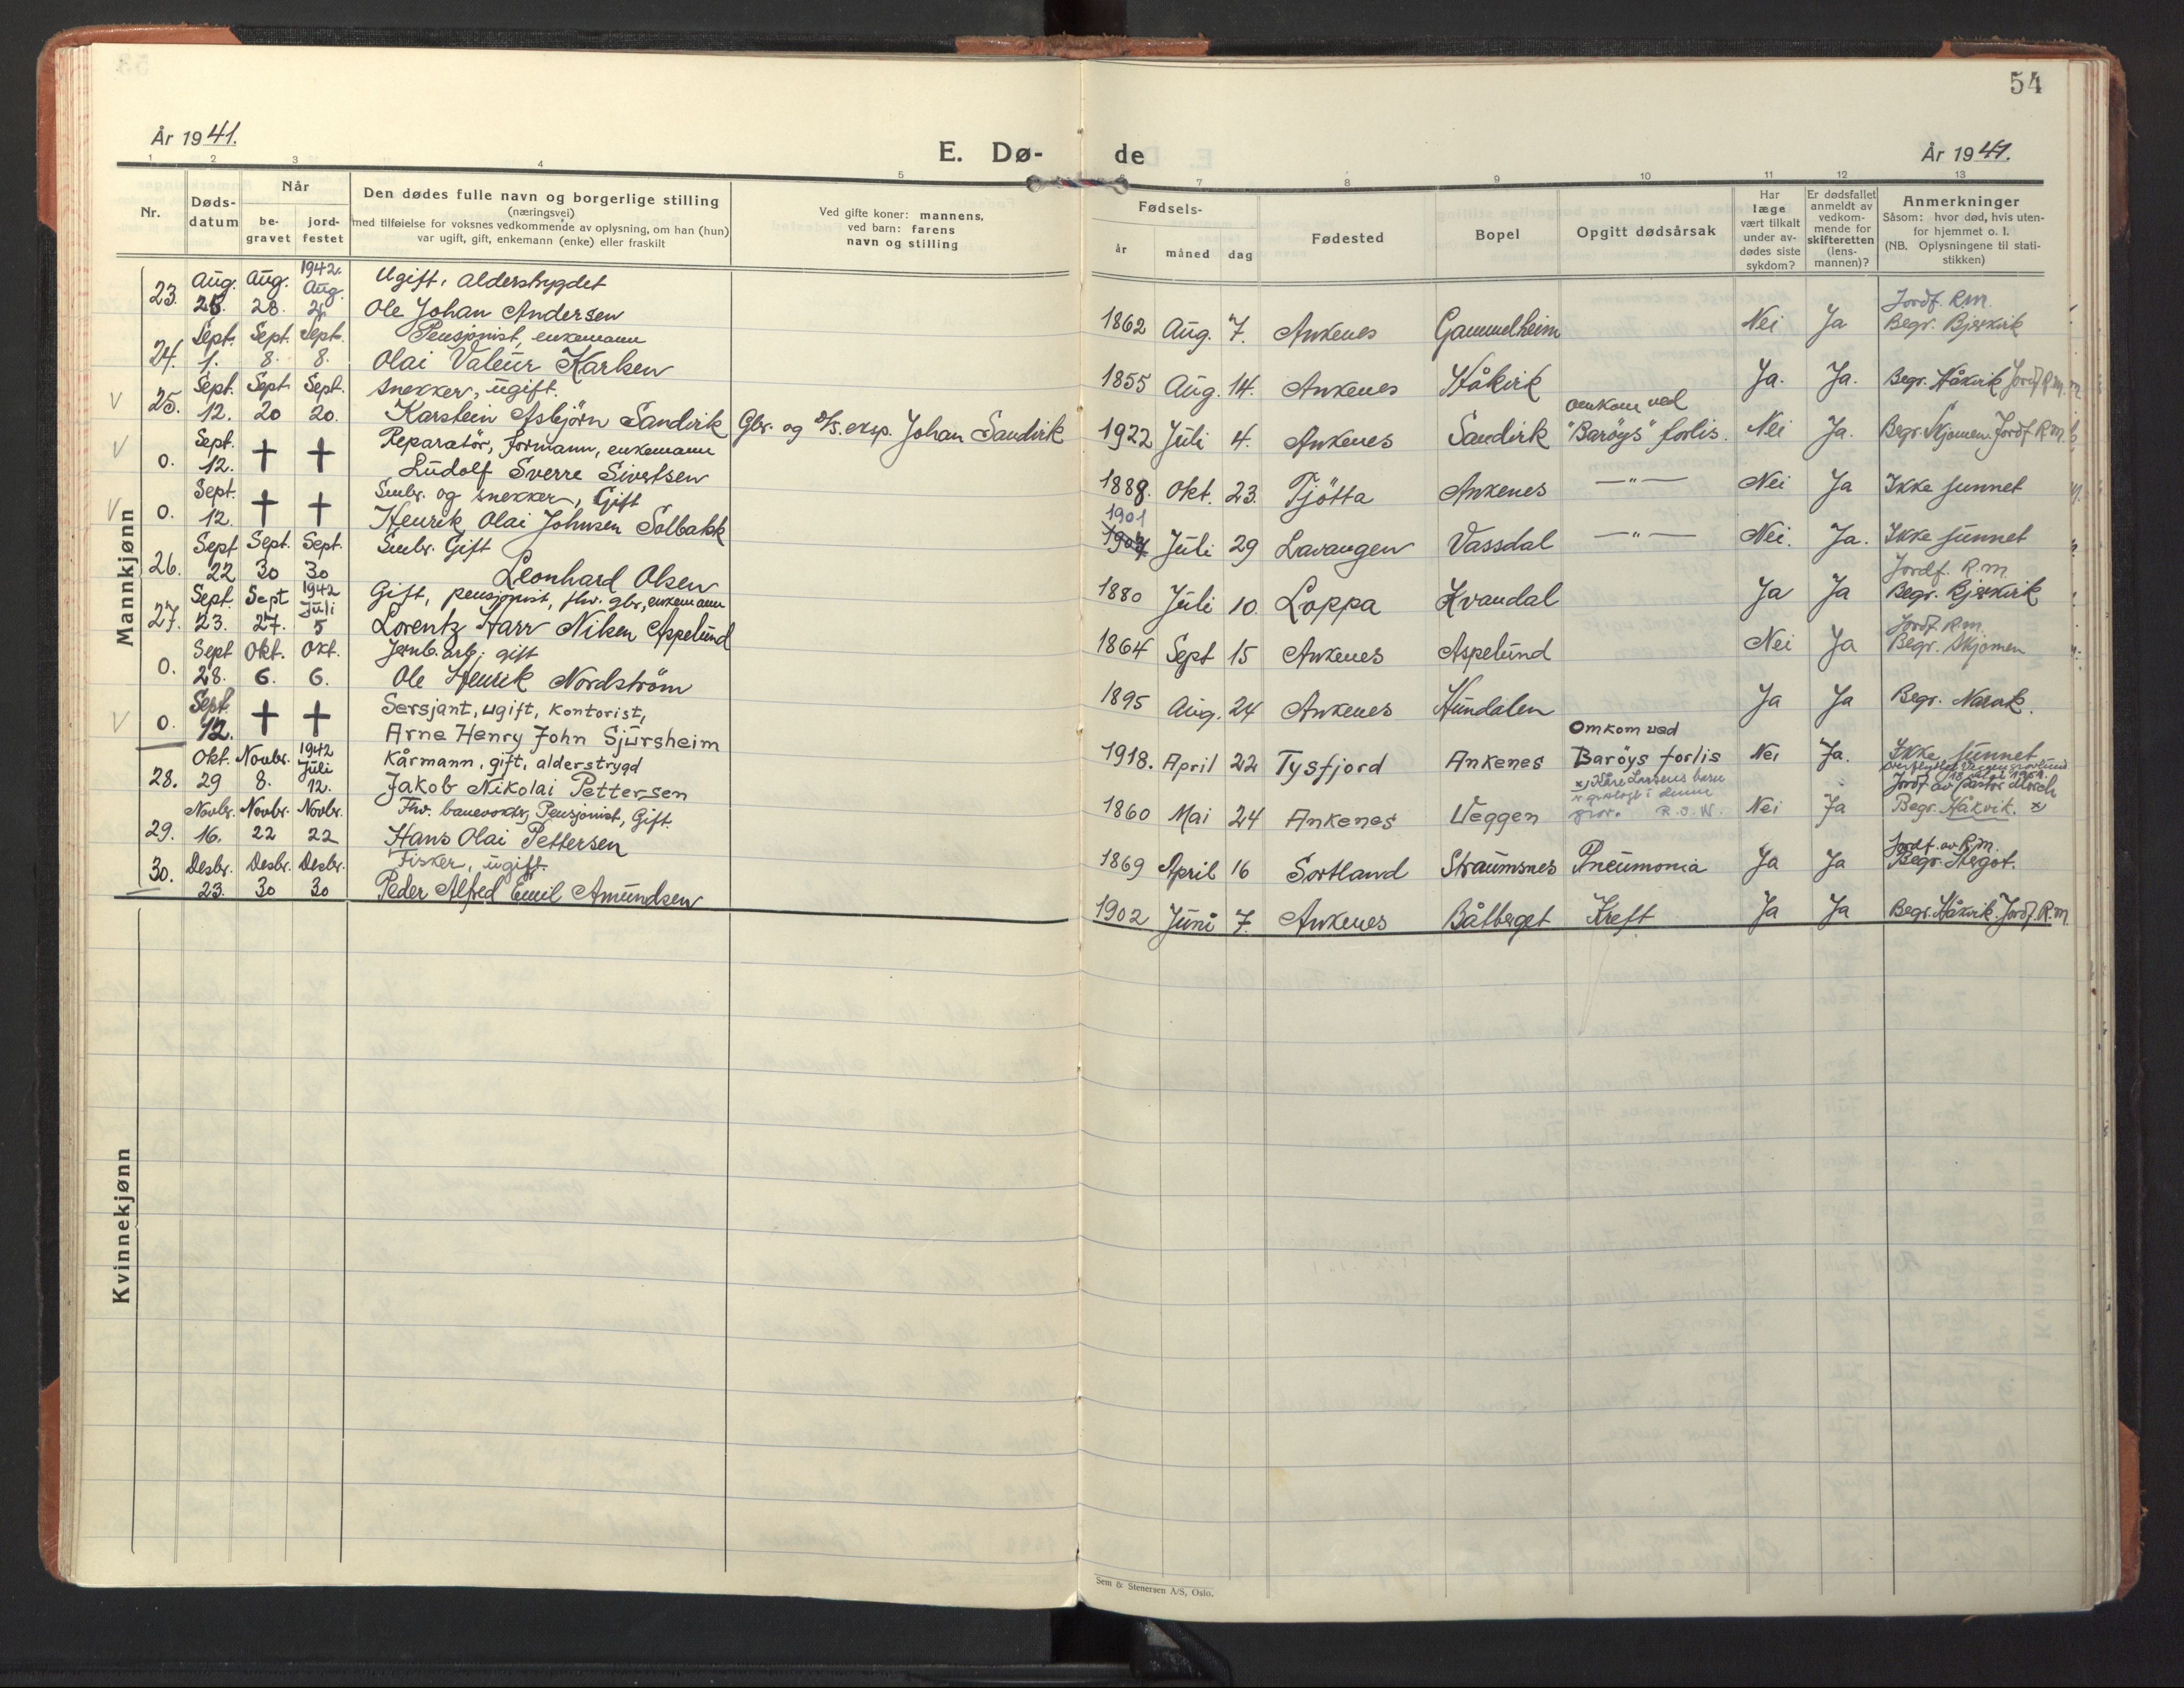 54
År 1941.
E. Dø- de
År 1941.
1 2 3 4 5 6 7 8 9 10 11 12 13
Nr.
Døds-
datum
Når
be-
gravet
jord-
festet
Den dødes fulle navn og borgerlige stilling
(næringsvei)
med tilføielse for voksnes vedkommende av oplysning, om han (hun)
var ugift, gift, enkemann (enke) eller fraskilt
Ved gifte koner: mannens,
ved barn: farens
navn og stilling
Fødsels-
år måned dag
Fødested
Bopel
Opgitt dødsårsak
Har
læge
vært tilkalt
under av-
dødes siste
sykdom?
Er dødsfallet
anmeldt av
vedkom-
mende for
skifteretten
(lens-
mannen)?
Anmerkninger
Såsom: hvor død, hvis uten-
for hjemmet o. l.
(NB. Oplysningene til stati-
stikken)
Mannkjønn
Aug. Aug. 1942. Aug. Ugift, alderstrygdet
23. 25. 28. 2. Ole Johan Andersen
1862 Aug. 7. Ankenes Gammelheim Nei Ja Jordf. R.m.
Begr. Bjerkvik
Sept. Sept. Sept. Pensjonist, enkemann
24. 1. 8. 8. Olai Valeur Karlsen
1855 Aug. 14. Ankenes Håkvik Ja. Ja. Begr. Håkvik Jordf R.m.
Sept. Sept. Sept. snekker, ugift.
V 25. 12. 20 20. Karsteen Asbjörn Sandvik Gbr. og D/S. eksp. Johan Sandvik
omkom ved
1922 Juli 4. Ankenes Sandvik "Barøys" forlis. Nei Ja. Begr. Skjomen. Jordf R.m.
V Sept. Reparatör, formann, enkemann
0. 12. † † Ludolf Sverre Sivertsen
1888. Okt. 23. Tjötta Ankenes —"— Nei Ja Ikke funnet
V Sept. Smbr. og snekker, Gift
0. 12. † † Henrik Olai Johnsen Solbakk
1901
Juli 29 Lavangen Vassdal —"— Nei. Ja. Ikke funnet
Sept Sept. Sept. Smbr. Gift
26. 22 30 30 Leonhard Olsen
1880 Juli 10. Loppa Kvandal Ja Ja Jordf. R.m.
Begr. Bjerkvik
Sept. Sept 1942 Juli Gift, pensjonist, fhv. gbr, enkemann
27. 23. 27. 5 Lorentz Harr Nilsen Aspelund
1864 Sept 15 Ankenes Aspelund Nei Ja Jordf R.m.
Begr. Skjomen
Sept Okt. Okt. Jernb. arb; gift
0. 28. 6. 6. Ole Henrik Nordström
1895 Aug. 24 Ankenes Hundalen Ja Ja Begr. Narvik.
V Sept. Sersjant, ugift, kontorist,
0. 12. † † Arne Henry John Sjursheim
Omkom ved
1918. April 22 Tysfjord Ankenes Barøys forlis Nei Ja. Ikke funnet
Okt. Novbr. 1942 Juli Kårmann, gift, alderstrygd
28. 29 8. 12. Jakob Nikolai Pettersen
x) Kåre Larsens barn
er gravlagt i denne
grav. R.O.W.
1860 Mai 24 Ankenes Veggen Nei Ja Jordf av pastor
Begr. Håkvik. x)
Novbr. Novbr. Novbr. Fhv. banevokter, Pensjonist, Gift.
29. 16. 22 22 Hans Olai Pettersen
1869 April 16 Sortland Straumsnes Pneumonia Ja Ja Jordf. av R.m.
Begr.
Desbr. Desbr. Desbr. Fisker, ugift.
30. 23. 30 30 Peder Alfred Emil Amundsen
1902 Juni 7. Ankenes Båtberget Kreft Ja Ja Begr. Håkvik. Jordf. R.m.
Kvinnekjønn
Sem & Stenersen A/S, Oslo.